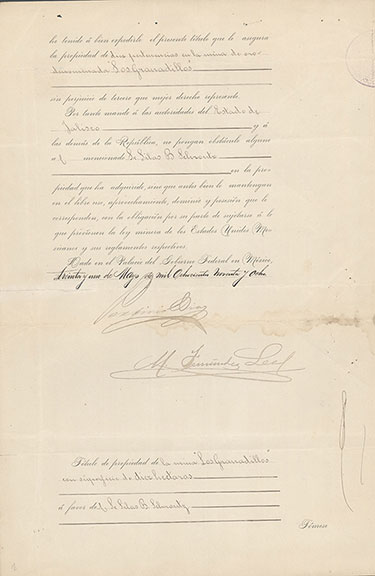 ha tenido á bien expedirle el presente título que le asegura
la propiedad de diez pertenencias en la mina de oro
denominada "Los Granadillos"
sin perjuicio de tercero que mejor derecho represente.
Por tanto mando á las autoridades del Estado de
Jalisco y á
las demás de la República, no pongan obstáculo alguno
al mencionado Sr. Silas B.
en la pro-
piedad que ha adquirido, sino que antes bien le mantengan
en el libre uso, aprovechamiento, dominio y posesión que le
corresponden, con la obligación por su parte de sujetarse á lo
que previenen la ley minera de los Estados Unidos Me-
xicanos y sus reglamentos respectivos.
Dado en el Palacio del Gobierno Federal en México,
treinta y uno de Mayo de mil Ochocientos Noventa y Ocho
Porfirio Diaz
M. Fernández Leal
Título de propiedad de la mina "Los Granadillos"
con superficie de diez hectaras
á favor del Sr. Silas B.
Firma